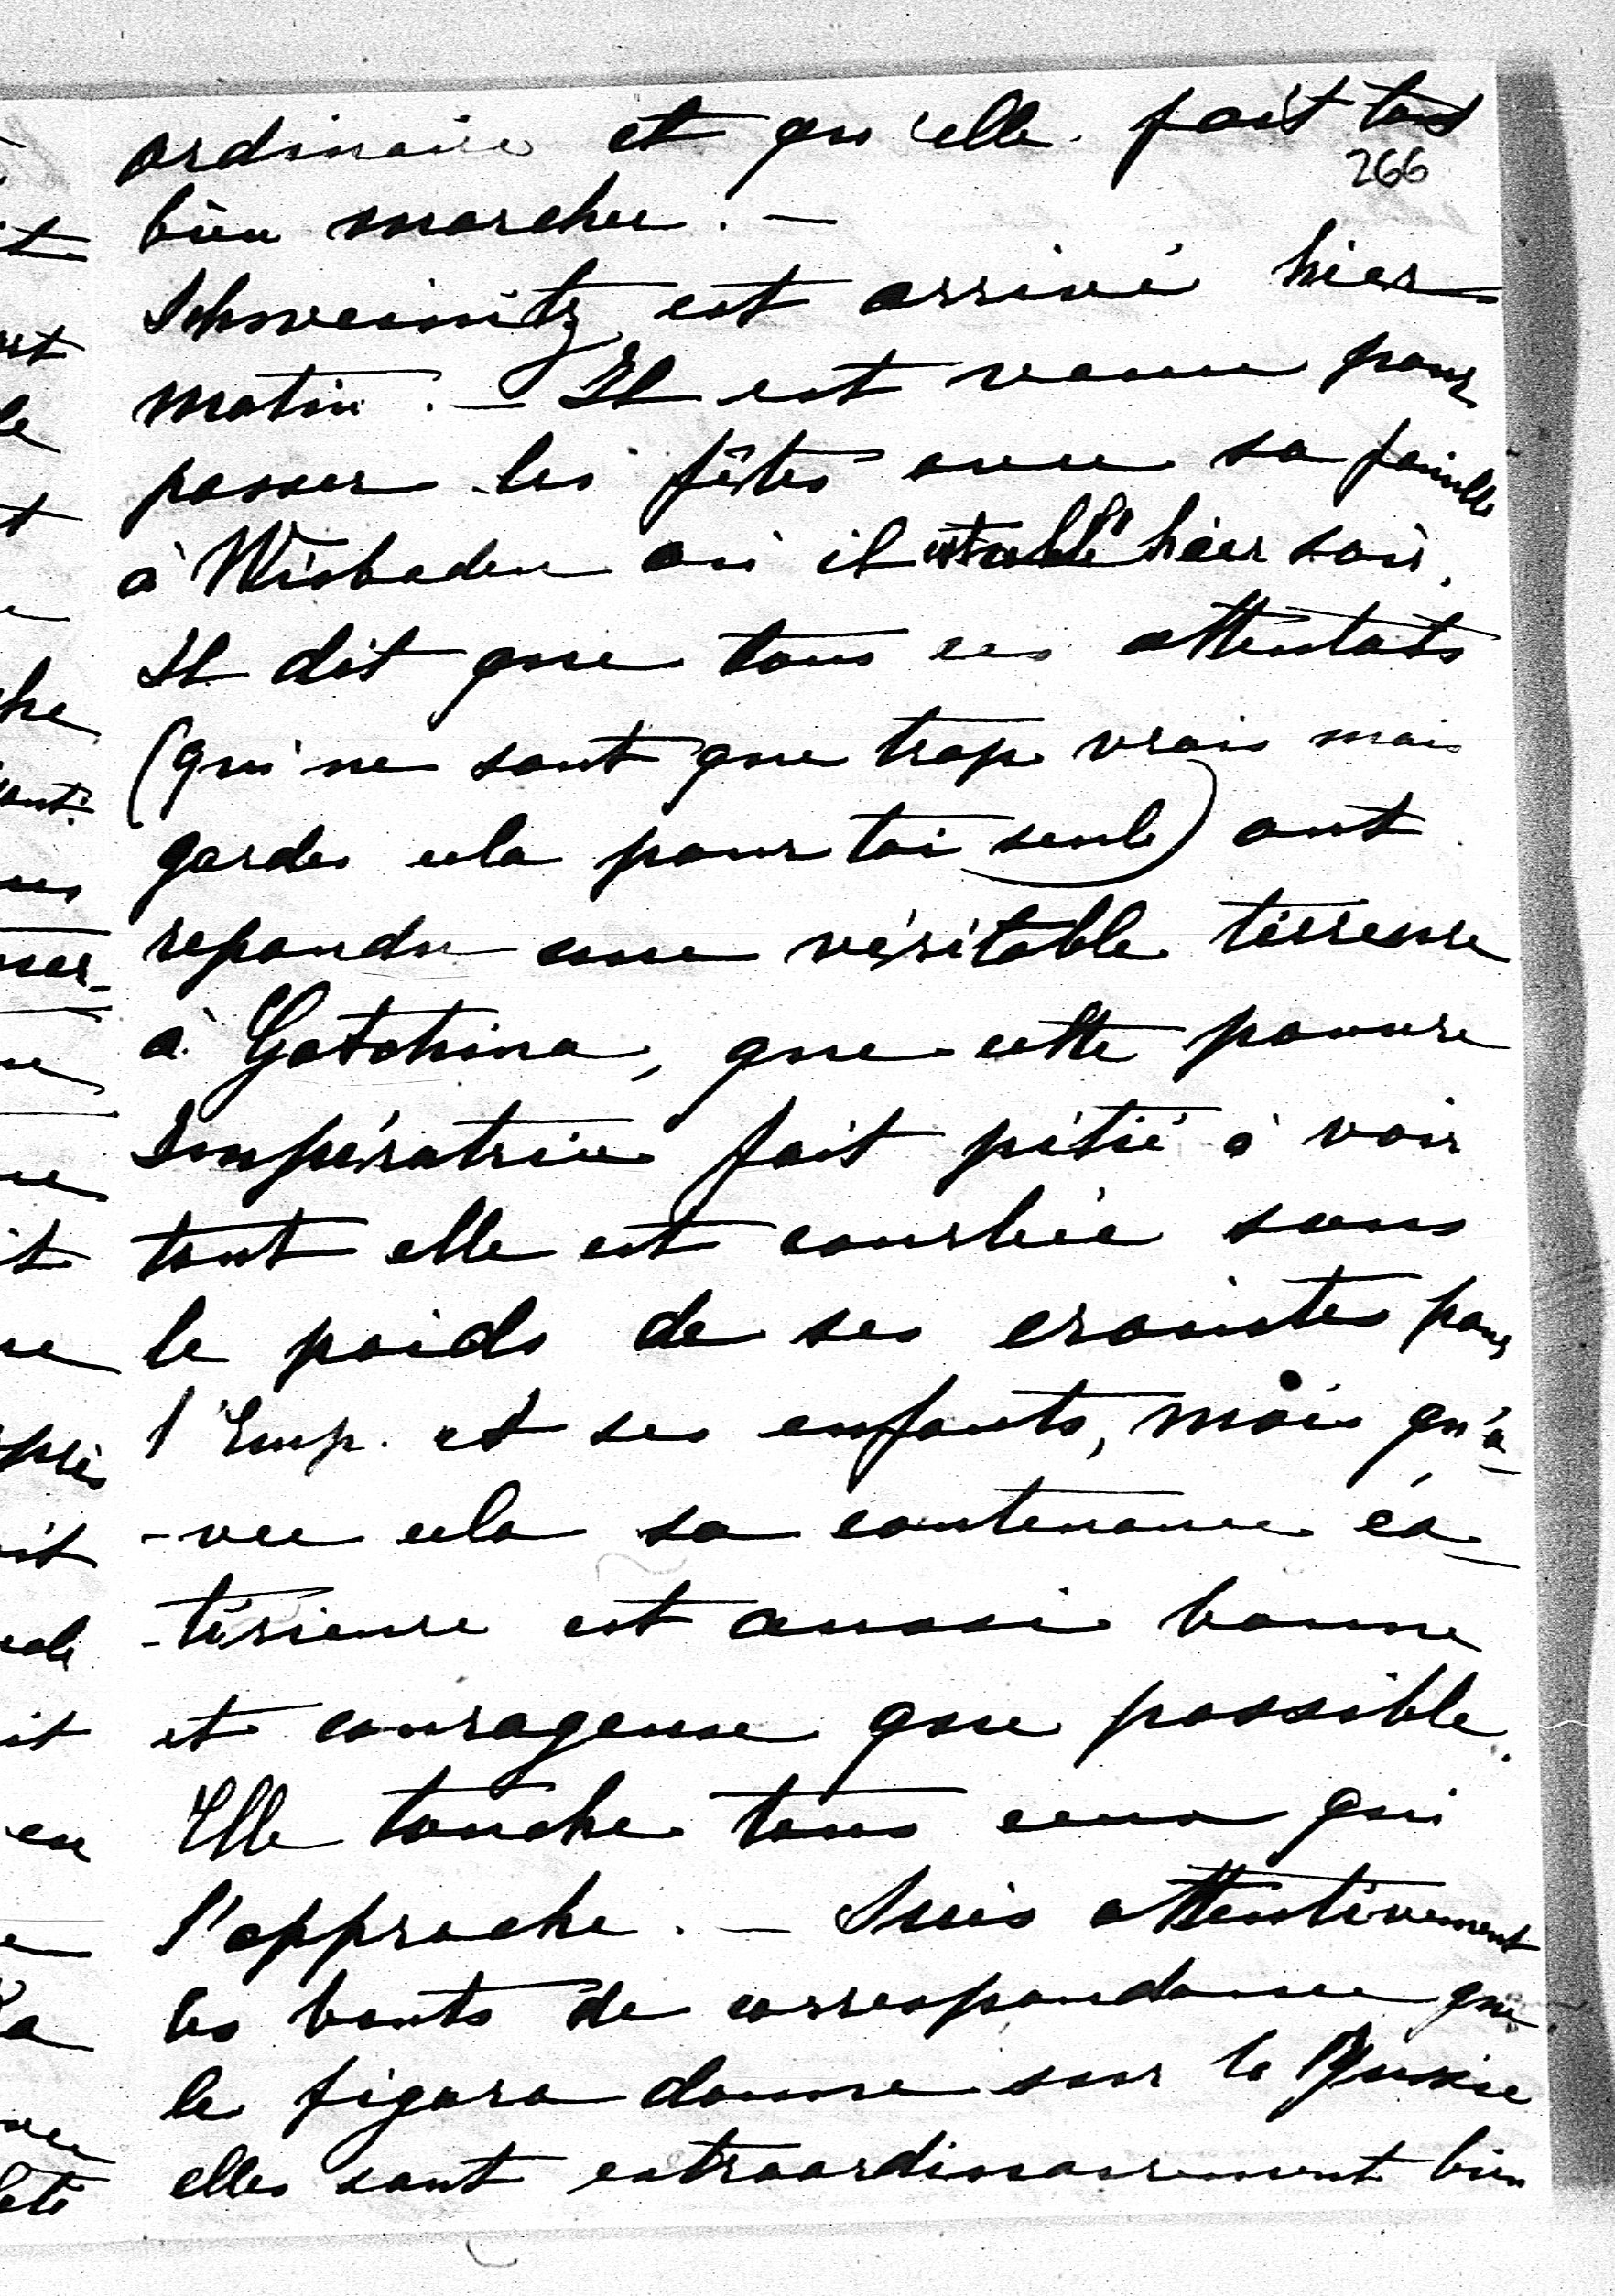 ordinaire et qu'elle fait tout
266
bien marcher. —
Schweinitz est arrivé hier
matin. — Il est venu pour
passer les fêtes avec sa famille
à Wisbaden où il est allé hier soir.
Il dit que tous ces attentats
(qui ne sont que trop vrais mais
gardes cela pour toi seule) ont
repandu une véritable terreure
à Gatchina, que cette pauvre
Impératrice fait pitié à voir
tant elle est courbée sous
le poids de ses craintes pour
l'Emp. et ses enfants, mais qu'a-
-vec cela sa contenance ex-
-térieure est aussi bonne
et courageuse que possible.
Elle touche tous ceux qui
l'approche. — Suis attentivement
les bouts de correspondance que
le figaro donne sur la Russie
elles sont extraordinairement bien